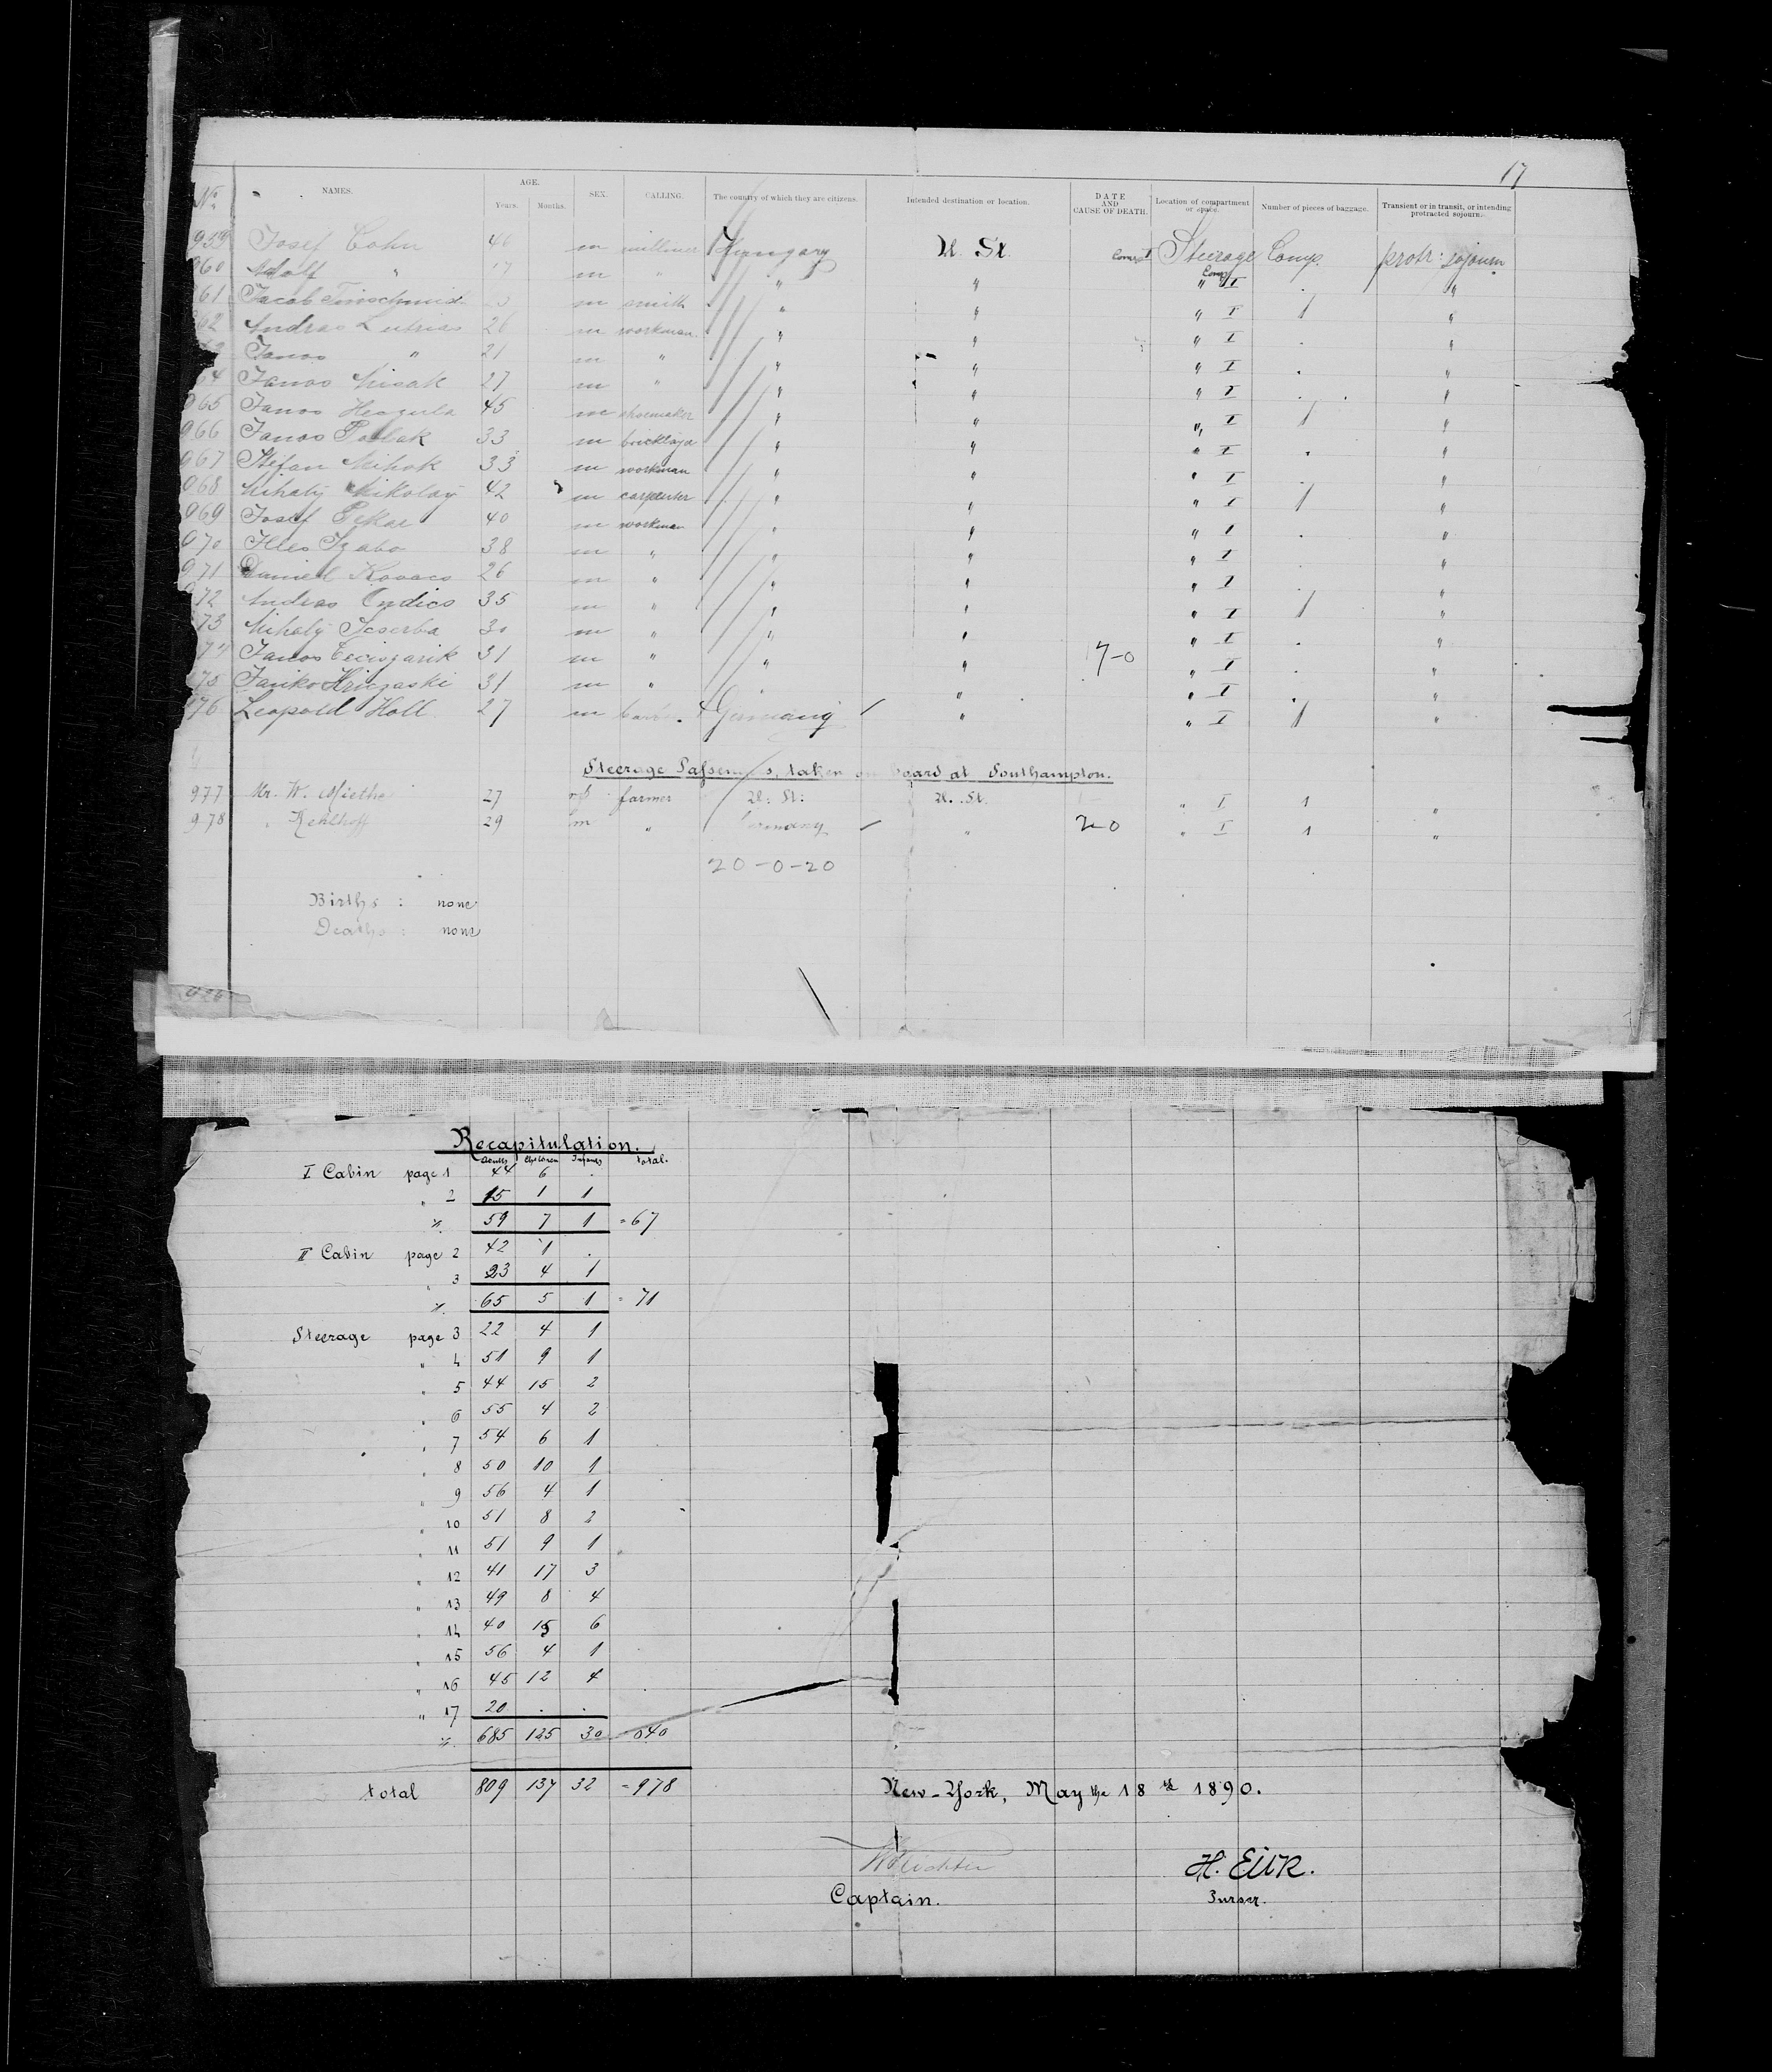 17
No. NAMES. AGE. Years. Months. SEX. CALLING. The country of which they are citizens. Intended destination or location. DATE AND CAUSE OF DEATH. Location of compartment or space. Number of pieces of baggage. Transient or in transit, or intending protracted sojourn.
959 Josef Cohn 40 m Hungary U. St. Comp I Steerage Comp. protr: sojourn
960 Adolf " 17 m " " " Comp " I . "
961 Jacob 23 m smith " " " I 1 "
962 Andras 26 m workman " " " I . "
Janos " 21 m " " " " I . "
964 Janos Misak 27 m " " " " I . "
965 Janos 45 m shoemaker " " " I 1 "
966 Janos Pollak 33 m " " " I . "
967 Stefan Mihok 33 m workman " " " I . "
968 Mihaly Mikolay 42 m carpenter " " " I 1 "
969 Josef Pekar 40 m workman " " " I . "
970 Illes Szabo 38 m " " " " I . "
971 Daniel Kovacs 26 m " " " " I . "
972 Andras Ondics 35 m " " " " I 1 "
973 Mihaly Scserba 30 m " " " " I . "
974 Janos 31 m " " " 17-0 " I . "
975 Janko 31 m " " " " I . "
976 Leopold Holl 27 m Germany " " I 1 "
Steerage Passengers, taken on board at Southampton.
977 Mr. W. Miethe 27 m farmer U. St. U. St. " I 1 "
978 " Rehlhoff 29 m " Germany " 2-0 " I 1 "
20-0-20
Births : none
Deaths : none
Recapitulation.
Adults Children Infants total.
I Cabin page 1 44 6 .
" 2 15 1 1
%. 59 7 1 = 67
II Cabin page 2 42 1 .
" 3 23 4 1
%. 65 5 1 = 71
Steerage page 3 22 4 1
" 4 51 9 1
" 5 44 15 2
" 6 55 4 2
" 7 54 6 1
" 8 50 10 1
" 9 56 4 1
" 10 51 8 2
" 11 51 9 1
" 12 41 17 3
" 13 49 8 4
" 14 40 15 6
" 15 56 4 1
" 16 45 12 4
" 17 20 . .
%. 685 125 30 840
total 809 137 32 = 978
New-York, May the 18th 1890.
H. Eilk.
Captain. Purser.